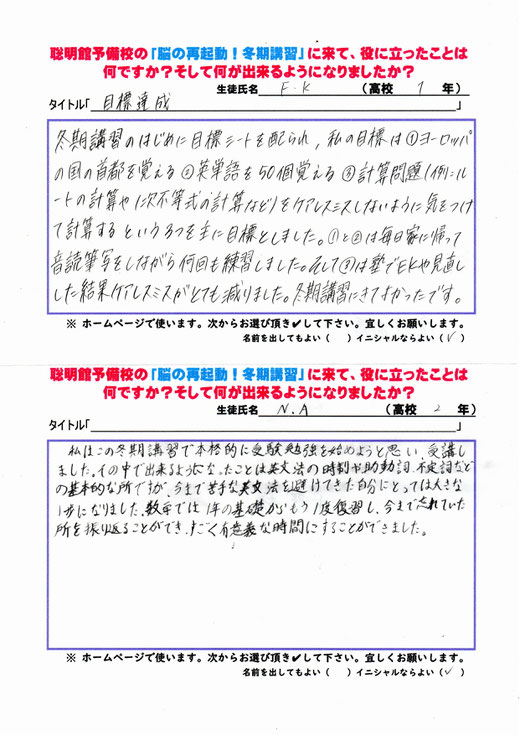 聡明館予備校の「脳の再起動！冬期講習」に来て、役に立ったことは
何ですか？そして何が出来るようになりましたか？
生徒氏名 F.K （高校 1 年）
タイトル「 目標達成 」
冬期講習のはじめに目標シートを配られ、私の目標は①ヨーロッパ
の国の首都を覚える②英単語を50個覚える③計算問題(例:ル
ートの計算や1次不等式の計算など)をケアレスミスしないように気をつけ
て計算するという3つを主に目標としました。①と②は毎日家に帰って
音読筆写をしながら何回も練習しました。そして③は塾でEKや見直し
した結果ケアレスミスがとても減りました。冬期講習にきてよかったです。
※ ホームページで使います。次からお選び頂き✔して下さい。宜しくお願いします。
名前を出してもよい（ ）イニシャルならよい（✓）
聡明館予備校の「脳の再起動！冬期講習」に来て、役に立ったことは
何ですか？そして何が出来るようになりましたか？
生徒氏名 N.A （高校 2 年）
タイトル「 」
私はこの冬期講習で本格的に受験勉強を始めようと思い、受講し
ました。その中で出来るようになったことは英文法の時制や助動詞、不定詞など
の基本的な所ですが、今まで苦手な英文法を避けてきた自分にとっては大きな
1歩になりました。数学では1年の基礎からもう1度復習し、今まで忘れていた
所を振り返ることができ、すごく有意義な時間にすることができました。
※ ホームページで使います。次からお選び頂き✔して下さい。宜しくお願いします。
名前を出してもよい（ ）イニシャルならよい（✓）